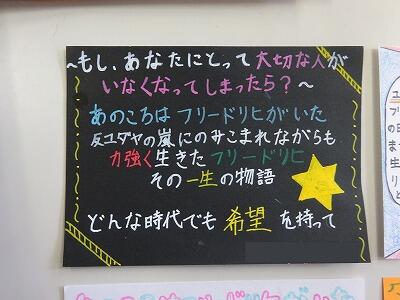 ~もし、あなたにとって大切な人が
いなくなってしまったら？~
あのころはフリードリヒがいた
反ユダヤの嵐にのみこまれながらも
力強く生きたフリードリヒ
その一生の物語
どんな時代でも希望を持って